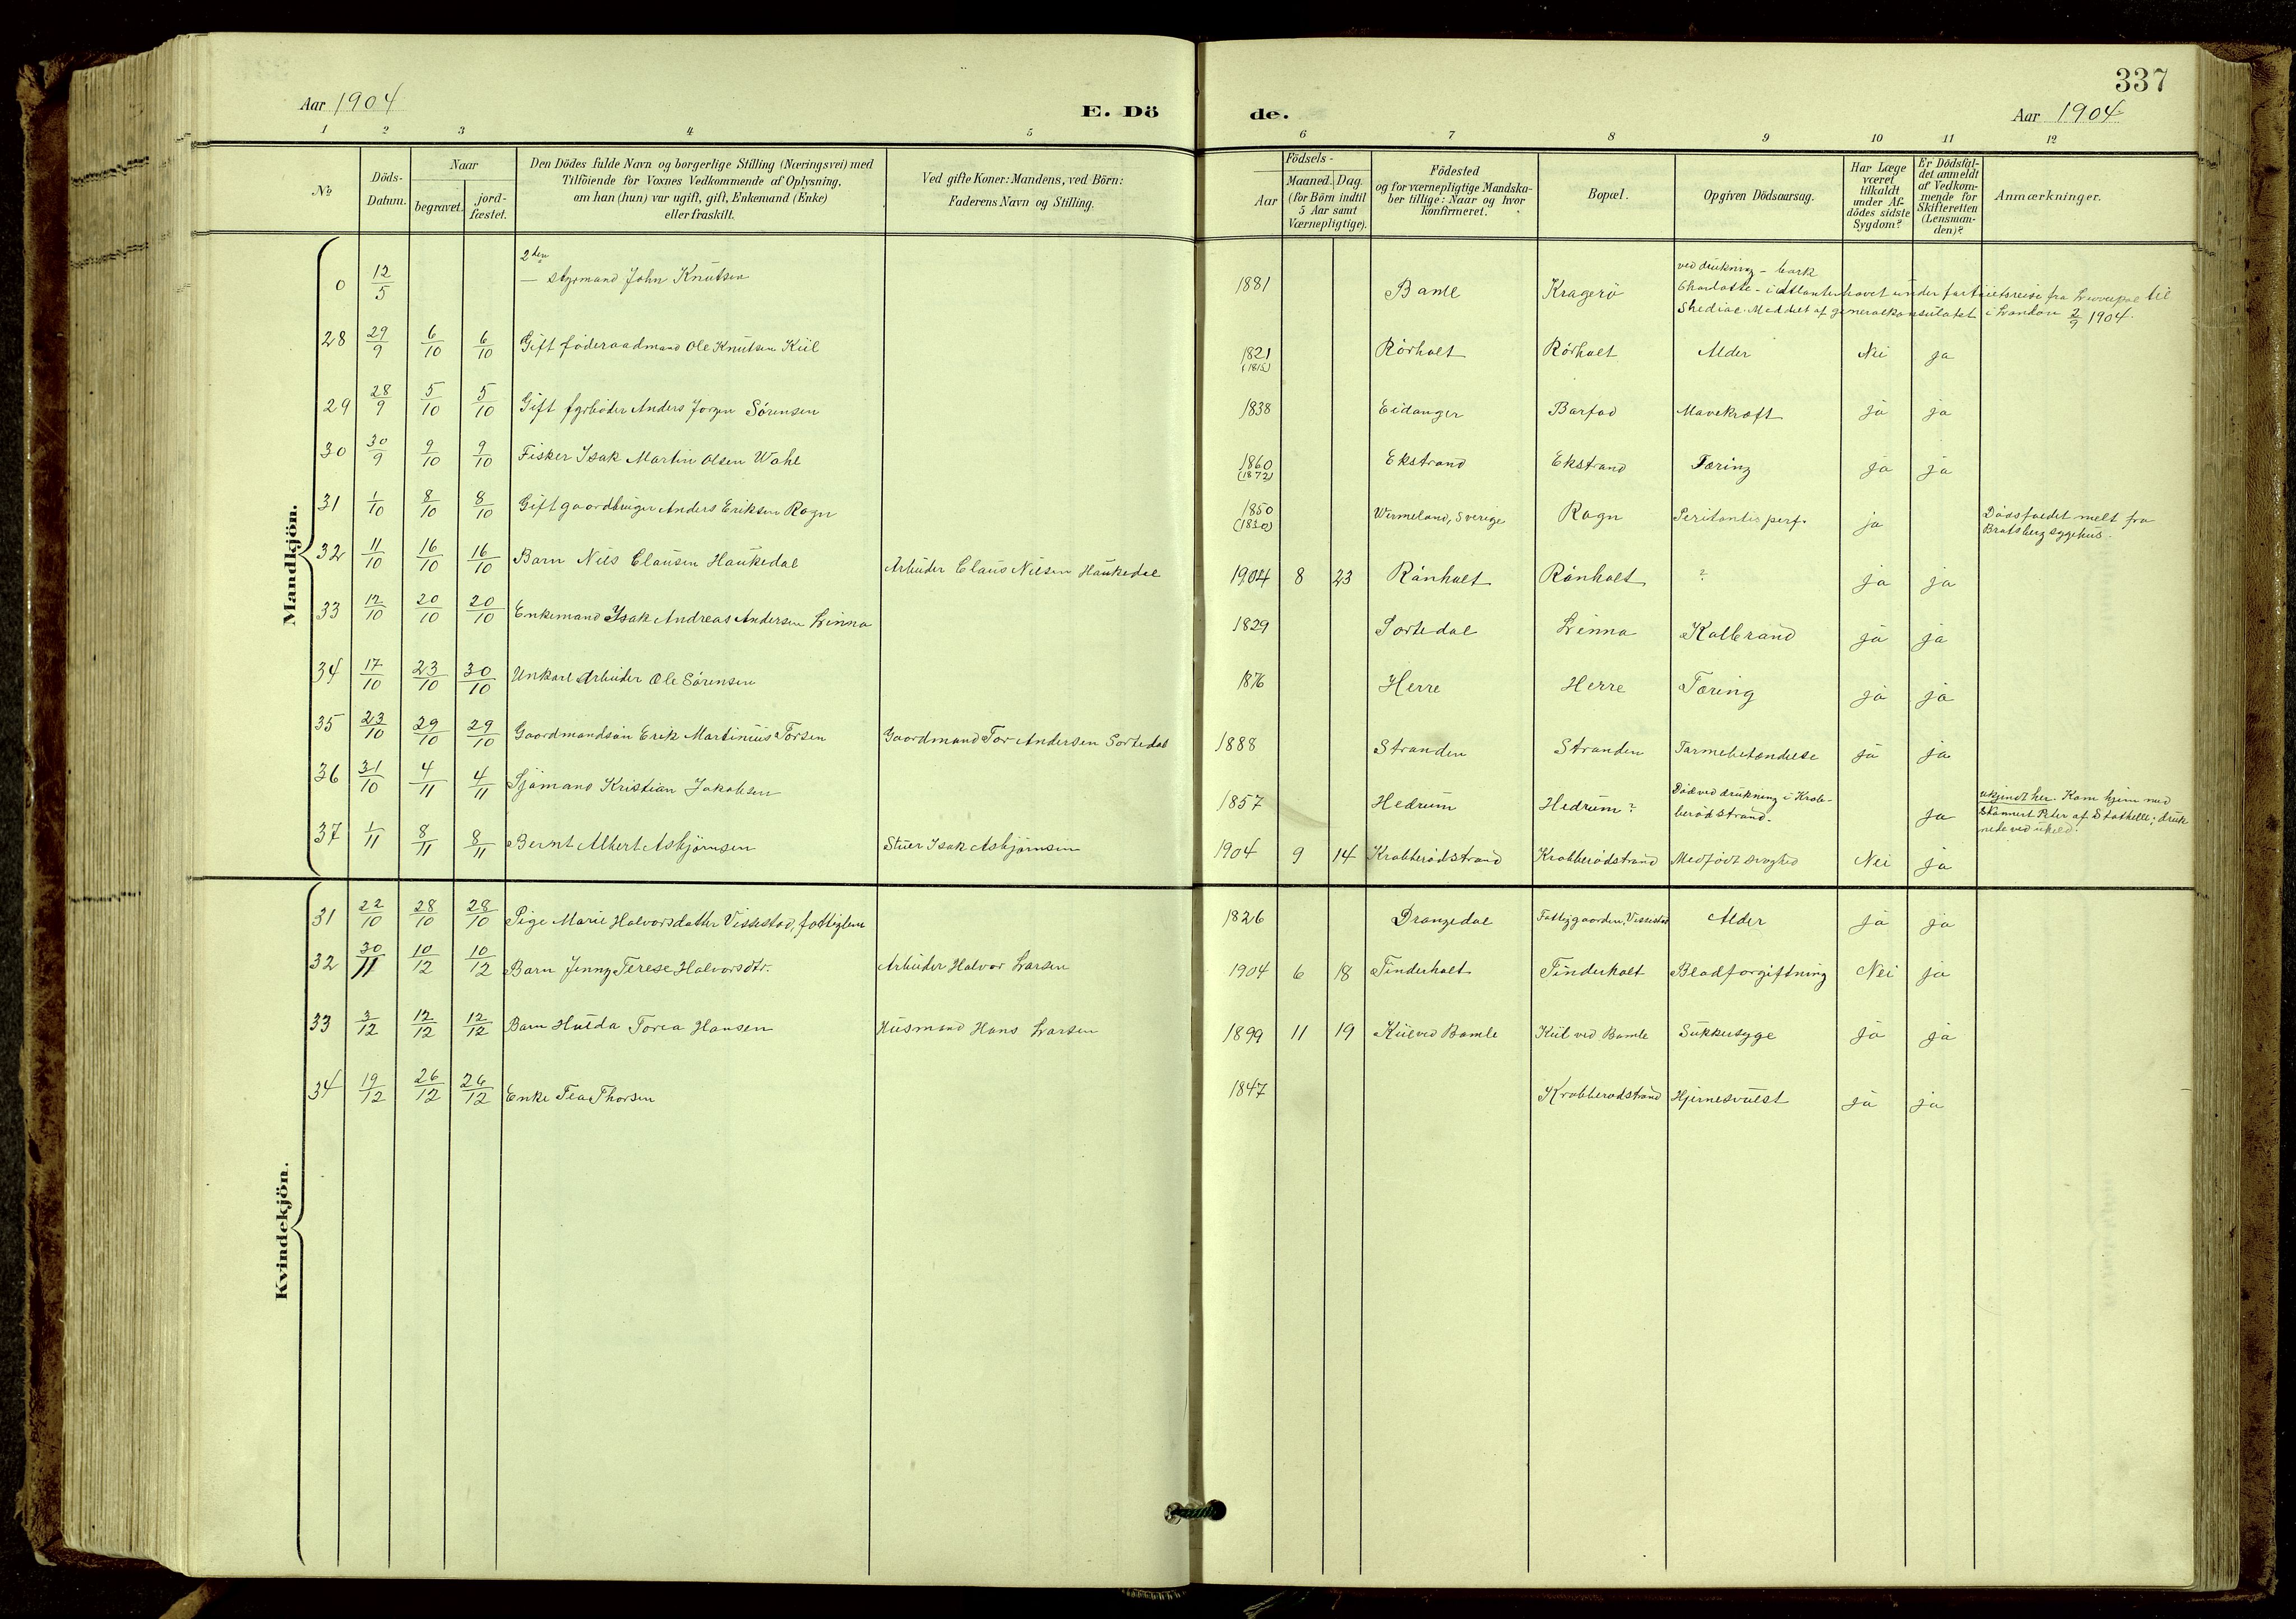 337
Aar 1904 E. Dö de. Aar 1904
1 2 3 4 5 6 7 8 9 10 11 12
No
Döds-
Datum.
Naar
begravet.
jord-
fæstet.
Den Dödes fulde Navn og borgerlige Stilling (Næringsvei) med
Tilföiende for Voxnes Vedkommende af Oplysning,
om han (hun) var ugift, gift, Enkemand (Enke)
eller fraskilt.
Ved gifte Koner: Mandens, ved Börn:
Faderens Navn og Stilling.
Födsels-
Aar
Maaned. Dag.
(for Börn indtil
5 Aar samt
Værnepligtige).
Födested
og for værnepligtige Mandska-
ber tillige: Naar og hvor
konfirmeret.
Bopæl.
Opgiven Dödsaarsag.
Har Læge
været
tilkaldt
under Af-
dödes sidste
Sygdom?
Er Dödsfal-
det anmeldt
af Vedkom-
mende for
Skifteretten
(Lensman-
den)?
Anmærkninger.
Mandkjön.
2den
0 12/5 — styrmand John Knutsen 1881 Bamle Kragerö
ved drukning – bark
Charlotte – i Atlanterhavet under fart reise fra Liverpool til
Shediac. Meddelt af generalkonsulatet i London 2/9 1904.
28 29/9 6/10 6/10 Gift föderaadmand Ole Knutsen Kiil 1821 (1815) Rörholt Rörholt Alder Nei ja
29 28/9 5/10 5/10 Gift fyrböder Anders Jorgen Sörensen 1838 Eidanger Barfod Mavekræft ja ja
30 30/9 9/10 9/10 Fisker Isak Martin Olsen Wahl 1860 (1872) Ekstrand Ekstrand Tæring ja ja
31 1/10 8/10 8/10 Gift gaardbruger Anders Eriksen Rogn 1850 (1830) Wermeland, Sverige Rogn Peritonitis perf. ja
Dödsfaldet melt fra
Bratsberg sygehus.
32 11/10 16/10 16/10 Barn Nils Clausen Haukedal Arbeider Claus Nilsen Haukedal 1904 8 23 Rånholt Rånholt ? ja ja
33 12/10 20/10 20/10 Enkemand Isak Andreas Andersen Linna 1829 Sortedal Linna Kolbrand ja ja
34 17/10 23/10 30/10 Unkarl Arbeider Ole Sörensen 1876 Herre Herre Tæring ja ja
35 23/10 29/10 29/10 Gaardmandsön Erik Martinius Torsen Gaardmand Tor Andersen Sortedal 1888 Stranden Stranden Tarmebetændelse ja ja
36 31/10 4/11 4/11 Sjömand Kristian Jakobsen 1857 Hedrum Hedrum?
Död ved drukning i Krob-
berödstrand. ja
ukjendt her. Kom hjem med
Skonnert Peter af Stathelle; druk-
nede ved uheld.
37 1/11 8/11 8/11 Bernt Albert Asbjörnsen Stuer Isak Asbjörnsen 1904 9 14 Krobberödstrand Krobberödstrand Medfödt svaghed Nei ja
Kvindekjön.
31 22/10 28/10 28/10 Pige Marie Halvorsdatter Vissestad, fattiglem 1826 Drangedal Fattiggaarden, Vissestad Alder ja ja
32 30/11 10/12 10/12 Barn Jenny Terese Halvorsdtr. Arbeider Halvor Larsen 1904 6 18 Tinderholt Tinderholt Blodforgiftning Nei ja
33 3/12 12/12 12/12 Barn Hulda Torea Hansen Husmand Hans Larsen 1899 11 19 Kiil ved Bamle Kiil ved Bamle Sukkersyge ja ja
34 19/12 26/12 26/12 Enke Tea Thorsen 1847 Krobberödstrand Hjernesvulst ja ja